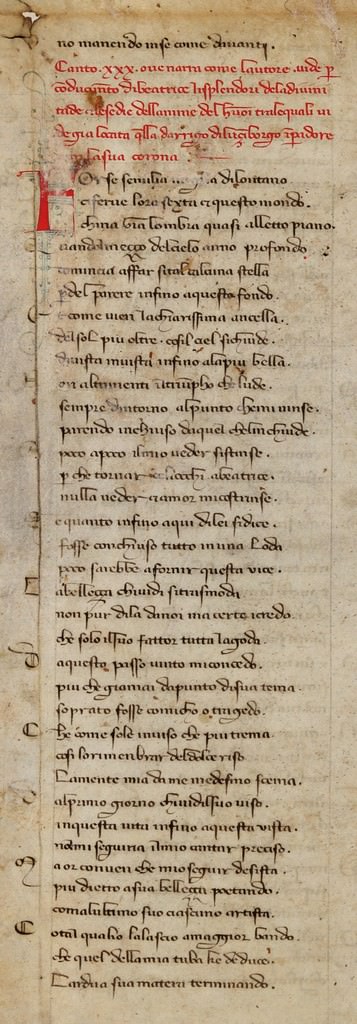 no manendo in se come davanti.
Canto. xxx. ove narra come lautore. vide p
coducimto di beatrice li splendori de la divini
tade e le sedie dellanime del huoi tra le quali vi
de gia locata qlla darrigo di luzinborgo ipadore
la sua corona
Forse semilia a di lontano
ci ferve lora sexta e questo mondo.
china gia lombra quasi alletto piano.
quando mezzo del cielo a noi profondo
comincia affar si tal calcuna stella
pde l parere infino a questo fondo.
e come vien la chiarissima ancella.
del sol piu oltre. cosi l ciel si chiude.
di vista in vista infino ala piu bella.
non altrimenti il triumpho che lude.
sempre dintorno al punto che mi vinse.
parendo inchiuso da quel chelli nchiude.
poco a poco il mio veder si stinse.
p che tornar colliocchi a beatrice.
nulla veder e amor mi costrinse.
e quanto infino a qui di lei si dice.
fosse conchiuso tutto in una loda
poco sarebbe a fornir questa vice.
La bellezza chividi si trasmoda
non pur di la da noi ma certo i credo.
che solo il suo fattor tutta la goda.
Da questo passo vinto mi concedo.
piu che giamai da punto di sua tema.
soprato fosse comicho o tragedo.
Che come sole in viso che piu trema
cosi lo rimenbrar del dolce riso
La mente mia da me medesmo scema.
al primo giorno chi vidi il suo viso.
in questa vita infino a questa vista.
nol mi seguiria il mio cantar preciso.
Ma or convien che mio seguir desista.
piu dietro a sua bellezza poetando.
come alultimo suo ciascuno artista.
Cotal qual io la lascio a maggior bando.
che quel della mia tuba ke deduce.
Lardua sua matera terminando.